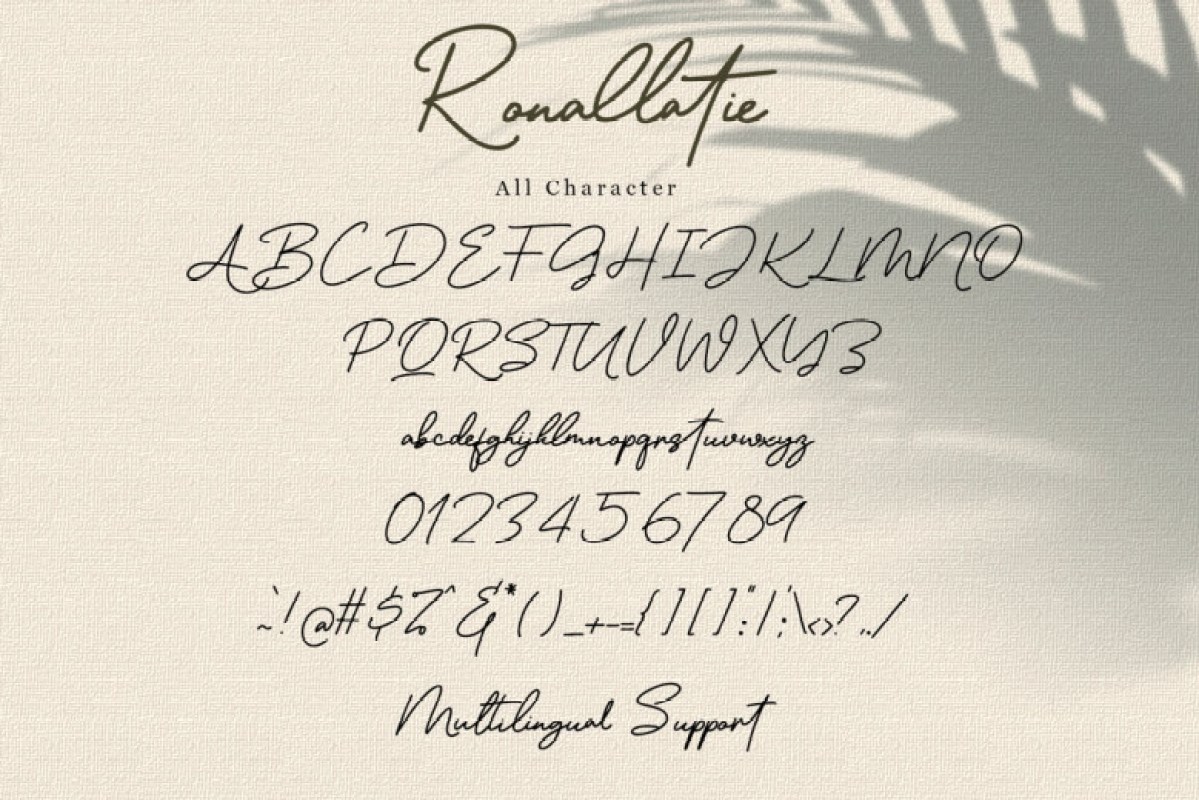 Ronallatie
All Character
ABCDEFGHIJKLMNO
PQRSTUVWXYZ
abcdefghijklmnopqrstuvwxyz
0123456789
~`!@#$%^&*()_+-={}[]":|;'\<>?,./
Multilingual Support